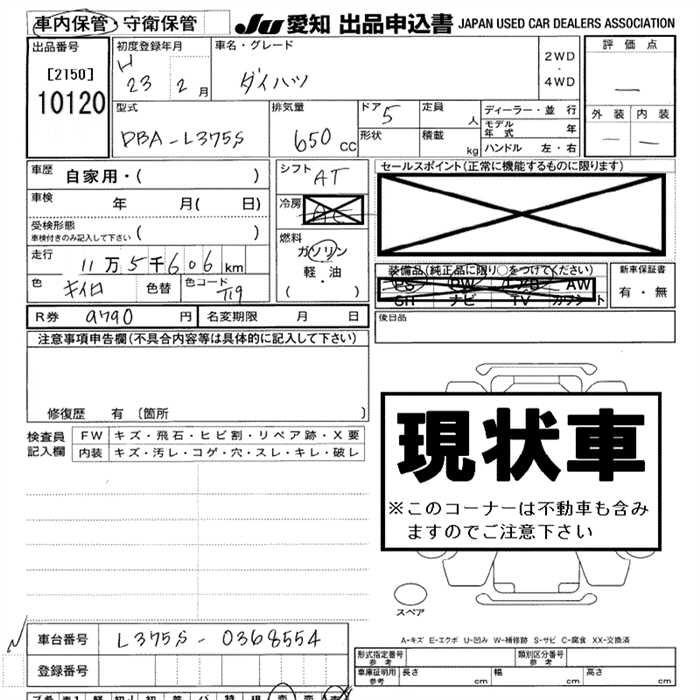 車内保管・守衛保管
JU 愛知 出品申込書 JAPAN USED CAR DEALERS ASSOCIATION
出品番号 初度登録年月 車名・グレード 2WD・4WD 評価点
[2150] H 23 2月 ダイハツ —
10120
型式 排気量 ドア 5 定員 人 ディーラー・並行 外装 内装
DBA-L375S 650 CC 形状 積載 kg モデル年式 年 — —
ハンドル 左・右
車歴 自家用・( ) シフト AT セールスポイント(正常に機能するものに限ります)
車検 年 月( 日) 冷房 AC
受検形態 車検付きのみ記入して下さい ( ) 燃料 ガソリン
軽・油
( ・ )
走行 11万5千606km 装備品(純正品に限り○をつけてください) 新車保証書
色 キイロ 色替 色コード PS PW AW 有・無
ナビ TV
R券 9790 円 名変期限 月 日 後日品
注意事項申告欄(不具合内容等は具体的に記入して下さい)
修復歴 有 〔箇所 〕
現状車
※このコーナーは不動車も含みますのでご注意下さい
検査員記入欄 FW キズ・飛石・ヒビ割・リペア跡・X要
内装 キズ・汚レ・コゲ・穴・スレ・キレ・破レ
スペア
A-キズ E-エクボ U-凹み W-補修跡 S-サビ C-腐食 XX-交換済
車台番号 L375S-0368554
登録番号
形式指定番号 参考 類別区分番号 参考
車庫証明用 参考 長さ cm 幅 cm 高さ cm